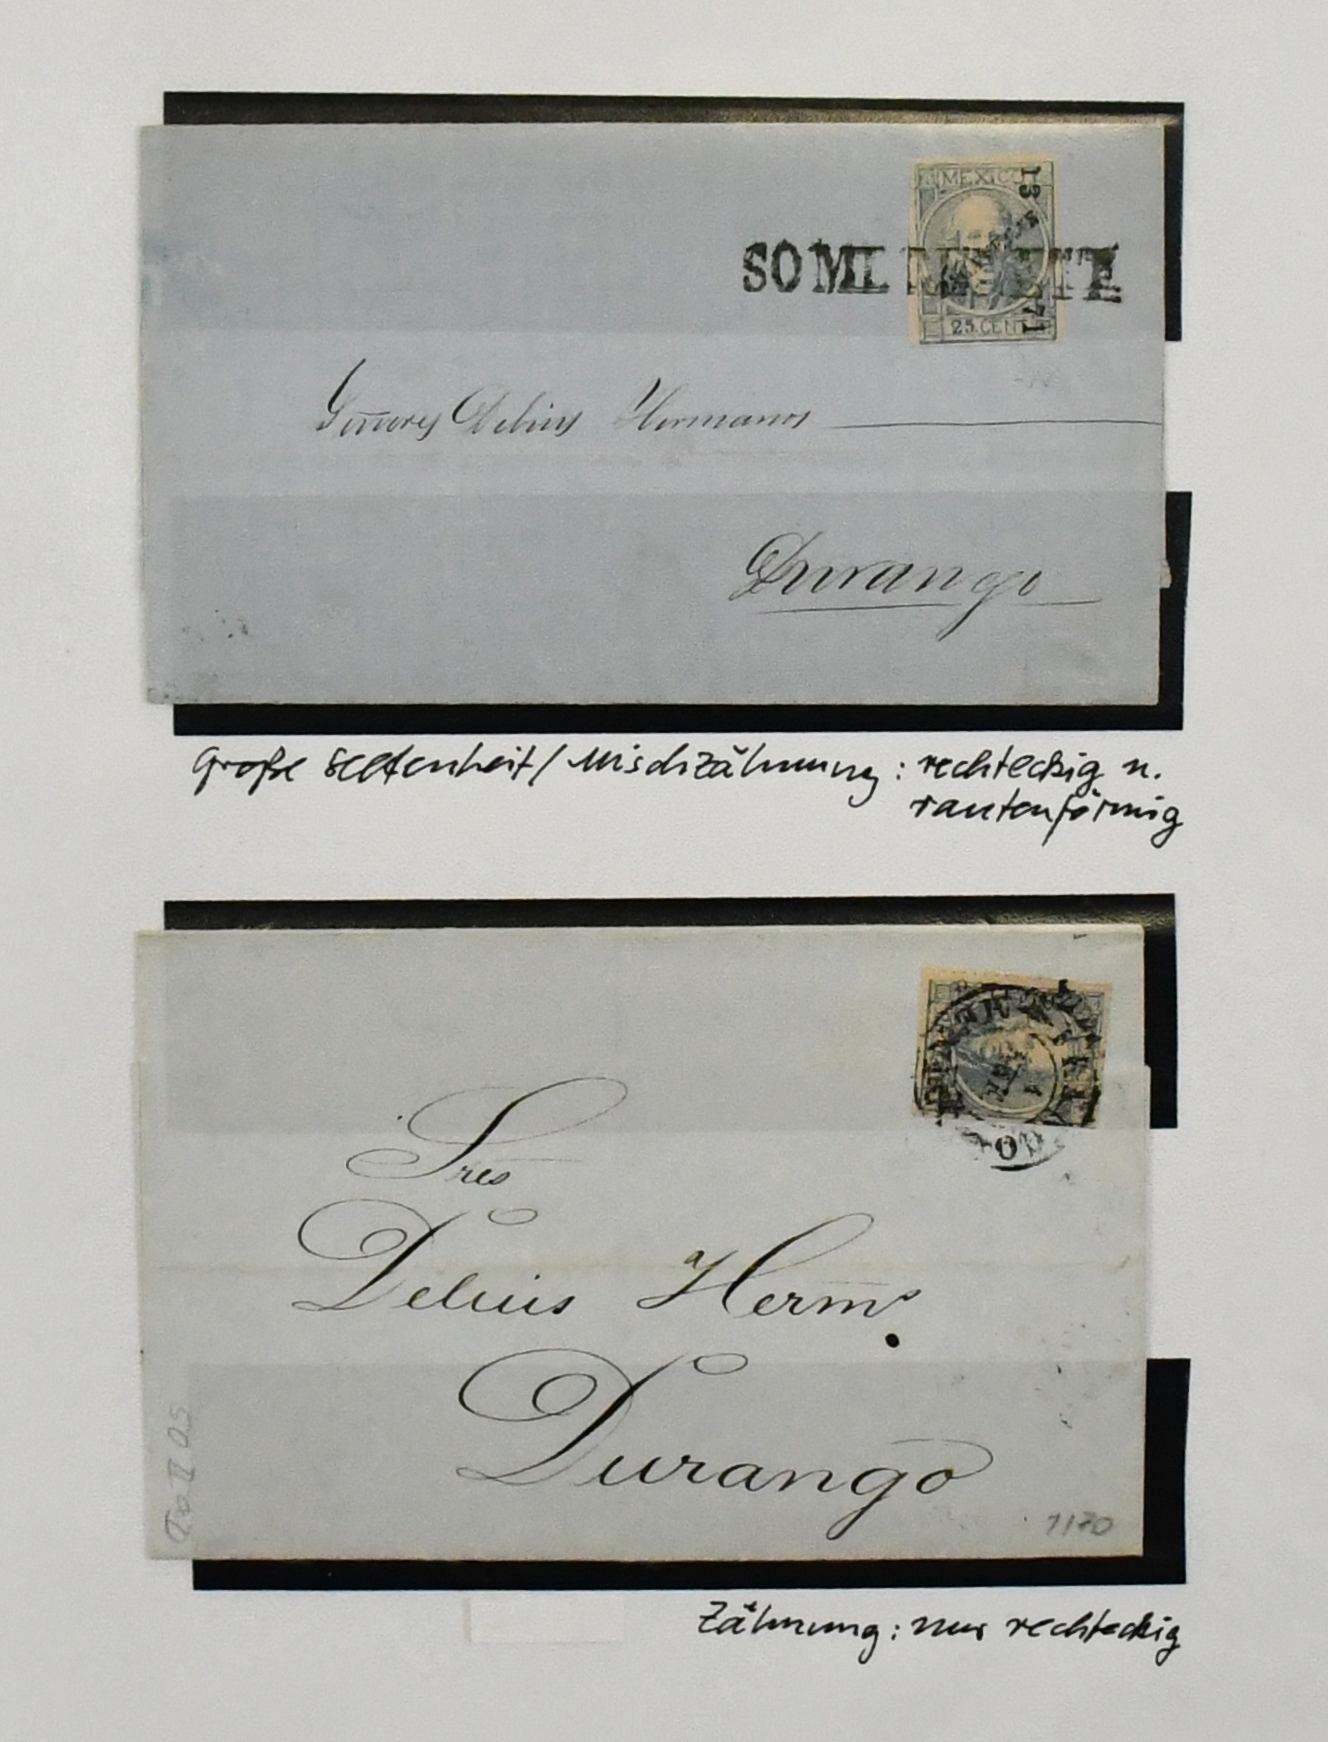 MEXICO
13
SOMBRERETE
71
25 CENT
Señores Delius Hermanos
Durango
Große Seltenheit / Mischzähnung: rechteckig u.
rautenförmig
Sres
Delius Herms
Durango
1170
Zähnung: nur rechteckig